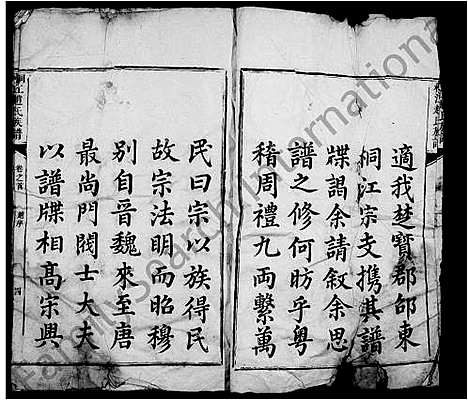 適我楚寶郡邵東
桐江宗支携其譜
牒謁余請敘余思
譜之修何昉乎粤
稽周禮九两繫萬
民曰宗以族得民
故宗法明而昭穆
别自晉魏來至唐
最尚門閥士大夫
以譜牒相高宗興
桐江趙氏族譜
卷之首
趙序
四
FamilySearch International